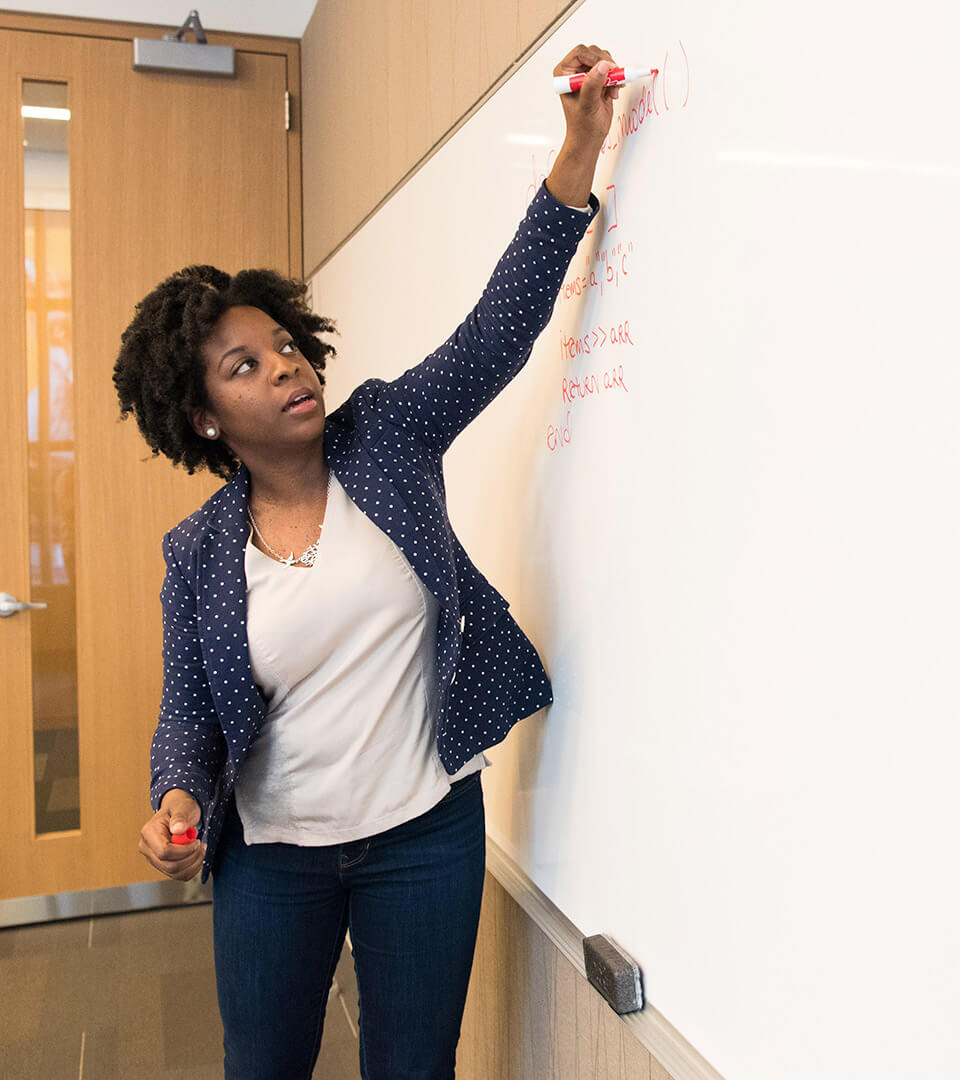 def
model()
]
items="a","b","c"
items>>arr
return arr
end